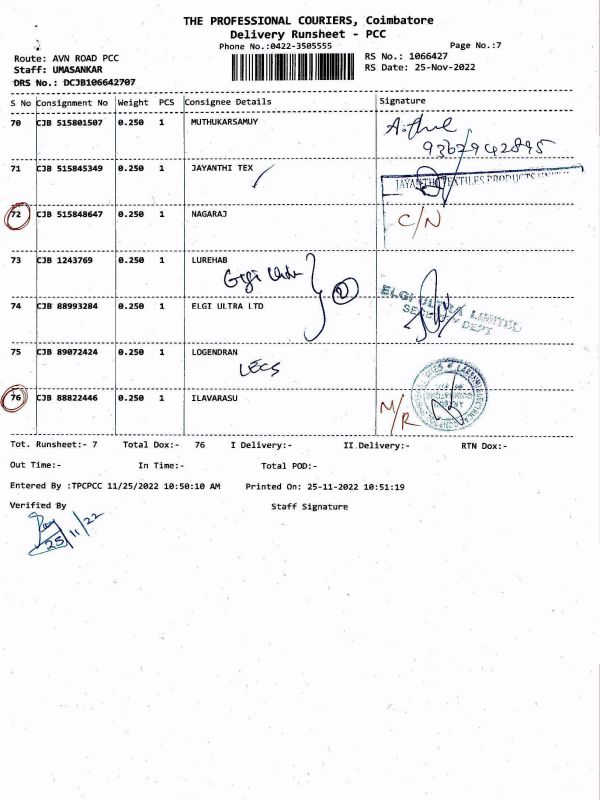 THE PROFESSIONAL COURIERS, Coimbatore
Delivery Runsheet - PCC
Phone No.:0422-3505555
Page No.:7
Route: AVN ROAD PCC
RS No.: 1066427
Staff: UMASANKAR
RS Date: 25-Nov-2022
DRS No.: DCJB106642707
S No Consignment No Weight PCS Consignee Details Signature
70 CJB 515801507 0.250 1 MUTHUKARSAMUY
71 CJB 515845349 0.250 1 JAYANTHI TEX
72 CJB 515848647 0.250 1 NAGARAJ C/N
73 CJB 1243769 0.250 1 LUREHAB
2
74 CJB 88993284 0.250 1 ELGI ULTRA LTD
ELGI ULTRA LIMITED
SECURITY DEPT
75 CJB 89072424 0.250 1 LOGENDRAN
LECS
76 CJB 88822446 0.250 1 ILAVARASU M/R
Tot. Runsheet:- 7 Total Dox:- 76 I Delivery:- II Delivery:- RTN Dox:-
Out Time:- In Time:- Total POD:-
Entered By :TPCPCC 11/25/2022 10:50:10 AM Printed On: 25-11-2022 10:51:19
Verified By Staff Signature
25/11/22